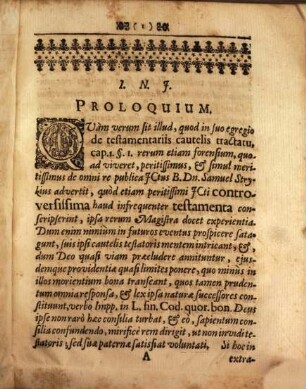 ( 1 )
I. N. J.
PROLOQUIUM.
QUàm verum sit illud, quod in suo egregio
de testamentariis cautelis tractatu,
cap. 1. §. 1. rerum etiam forensium, quo-
ad viveret, peritissimus, & simul meri-
tissimus de omni re publica JCtus B. Dn. Samuel Stry-
kius advertit, quòd etiam peritissimi JCti contro-
versissima haud infrequenter testamenta con-
scripserint, ipsa rerum Magistra docet experientia.
Dum enim nimiùm in futuros eventus prospicere sata-
gunt, suis ipsi cautelis testatoris mentem intricant, &
dum Deo quasi viam præludere annituntur, ejus-
demque providentiæ quasi limites ponere, quo minus in
illos morientium bona transeant, quos tamen pruden-
tum omnia responsa, & lex ipsa naturæ successores con-
stituunt, verbo Impp. in L. fin. Cod. quor. bon. Deus
ipse non rarò hæc consilia turbat, & eò, sapientum con-
silia confundendo, mirificè rem dirigit, ut non irruditæ
testatoris: sed suæ paternæ satisfiat voluntati. Si hoc in
A
extra-